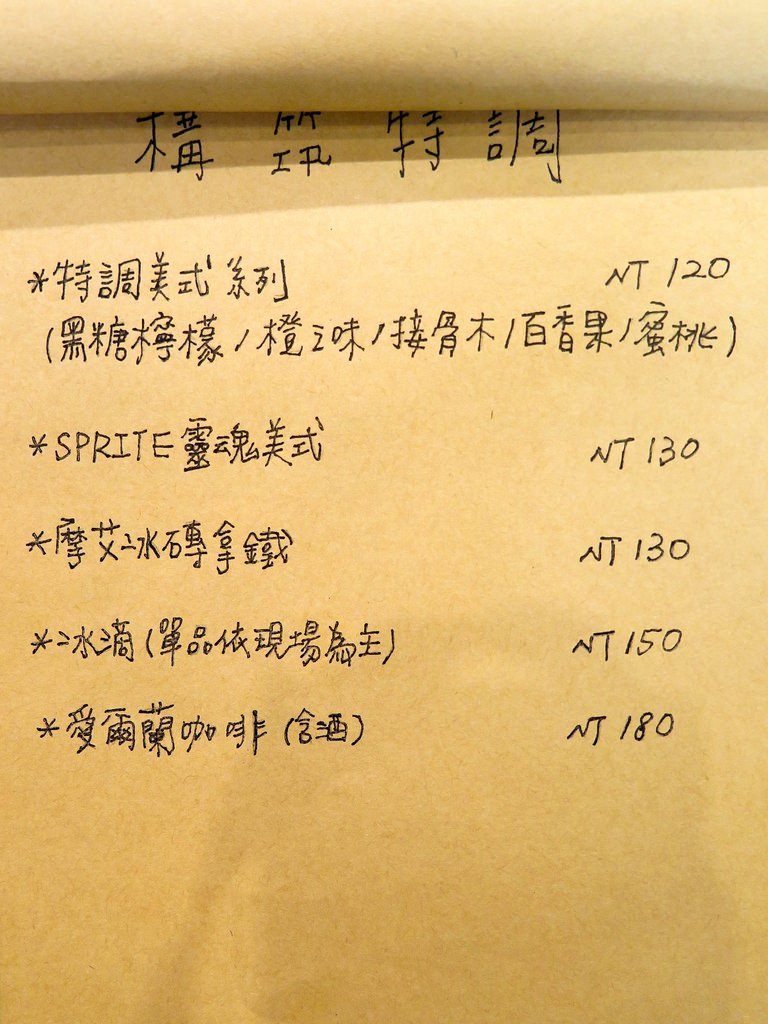 構筑特調
*特調美式系列 NT 120
(黑糖檸檬/橙之味/接骨木/百香果/蜜桃)
*SPRITE靈魂美式 NT 130
*摩艾冰磚拿鐵 NT 130
*冰滴(單品依現場為主) NT 150
*愛爾蘭咖啡(含酒) NT 180